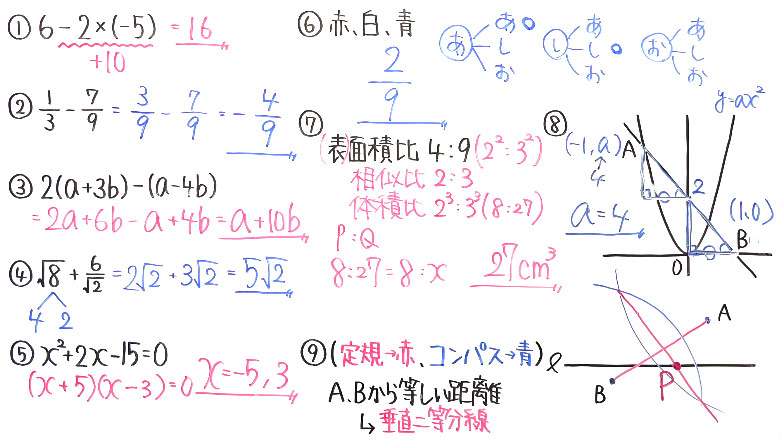 ① 6-2×(-5) = 16
+10
② 1/3 - 7/9 = 3/9 - 7/9 = - 4/9
③ 2(a+3b)-(a-4b)
=2a+6b-a+4b=a+10b
④ √8 + 6/√2 = 2√2 + 3√2 = 5√2
4 2
⑤ x²+2x-15=0
(x+5)(x-3)=0 x=-5,3
⑥ 赤、白、青
2/9
あ あ し お
し あ し お
お あ し お
⑦
(表)面積比 4:9 (2²:3²)
相似比 2:3
体積比 2³:3³(8:27)
P:Q
8:27=8:x 27cm³
⑧
y=ax²
(-1,a) A
4
2
(1,0)
a=4
B
O
⑨(定規→赤、コンパス→青)
A,Bから等しい距離
↳垂直二等分線
ℓ
A
B
P